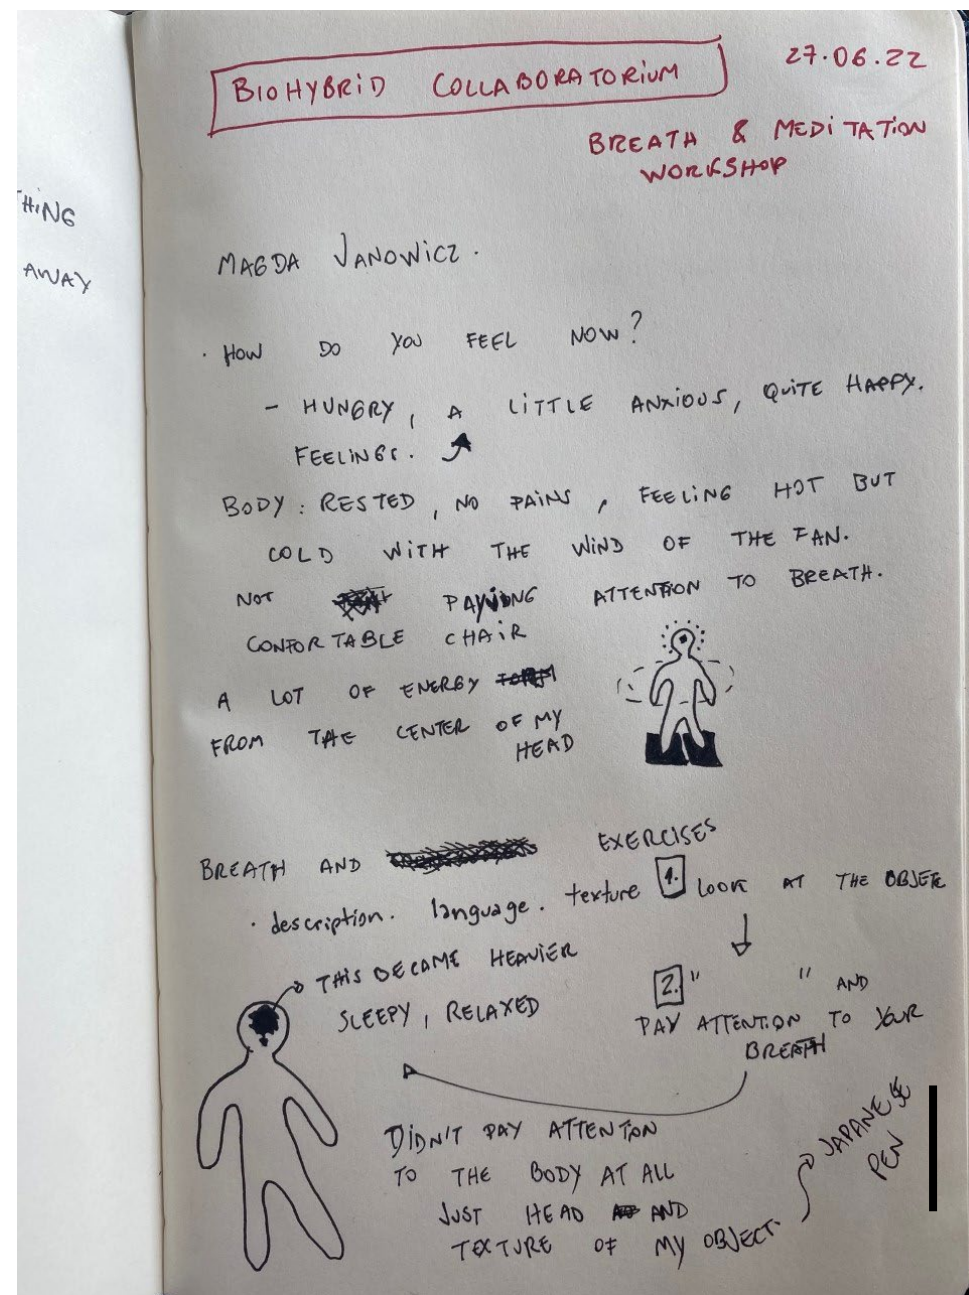 THING
AWAY
BIOHYBRID COLLABORATORIUM
27.06.22
BREATH & MEDITATION
WORKSHOP
MAGDA JANOWICZ.
· HOW DO YOU FEEL NOW?
- HUNGRY, A LITTLE ANXIOUS, QUITE HAPPY.
FEELINGS.
BODY: RESTED, NO PAINS, FEELING HOT BUT
COLD WITH THE WIND OF THE FAN.
NOT PAYING ATTENTION TO BREATH.
CONFORTABLE CHAIR
A LOT OF ENERGY
FROM THE CENTER OF MY
HEAD
BREATH AND EXERCISES
· description. language. texture
1. LOOK AT THE
2. " " AND
PAY ATTENTION TO YOUR
BREATH
THIS BECAME HEAVIER
SLEEPY, RELAXED
DIDN'T PAY ATTENTION
TO THE BODY AT ALL
JUST HEAD AND
TEXTURE OF MY OBJECT.
JAPANESE
PEN